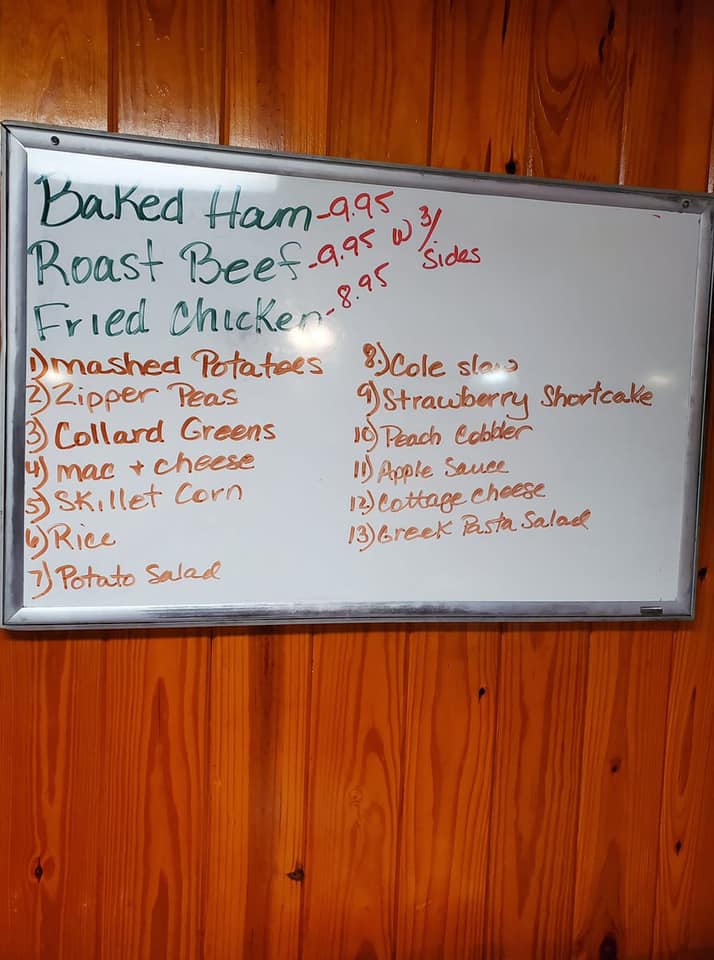 Baked Ham -9.95
Roast Beef -9.95 w 3/ Sides
Fried Chicken -8.95
1) mashed Potatoes
2) Zipper Peas
3) Collard Greens
4) mac + cheese
5) Skillet Corn
6) Rice
7) Potato Salad
8) Cole slaw
9) Strawberry Shortcake
10) Peach Cobbler
11) Apple Sauce
12) Cottage cheese
13) Greek Pasta Salad